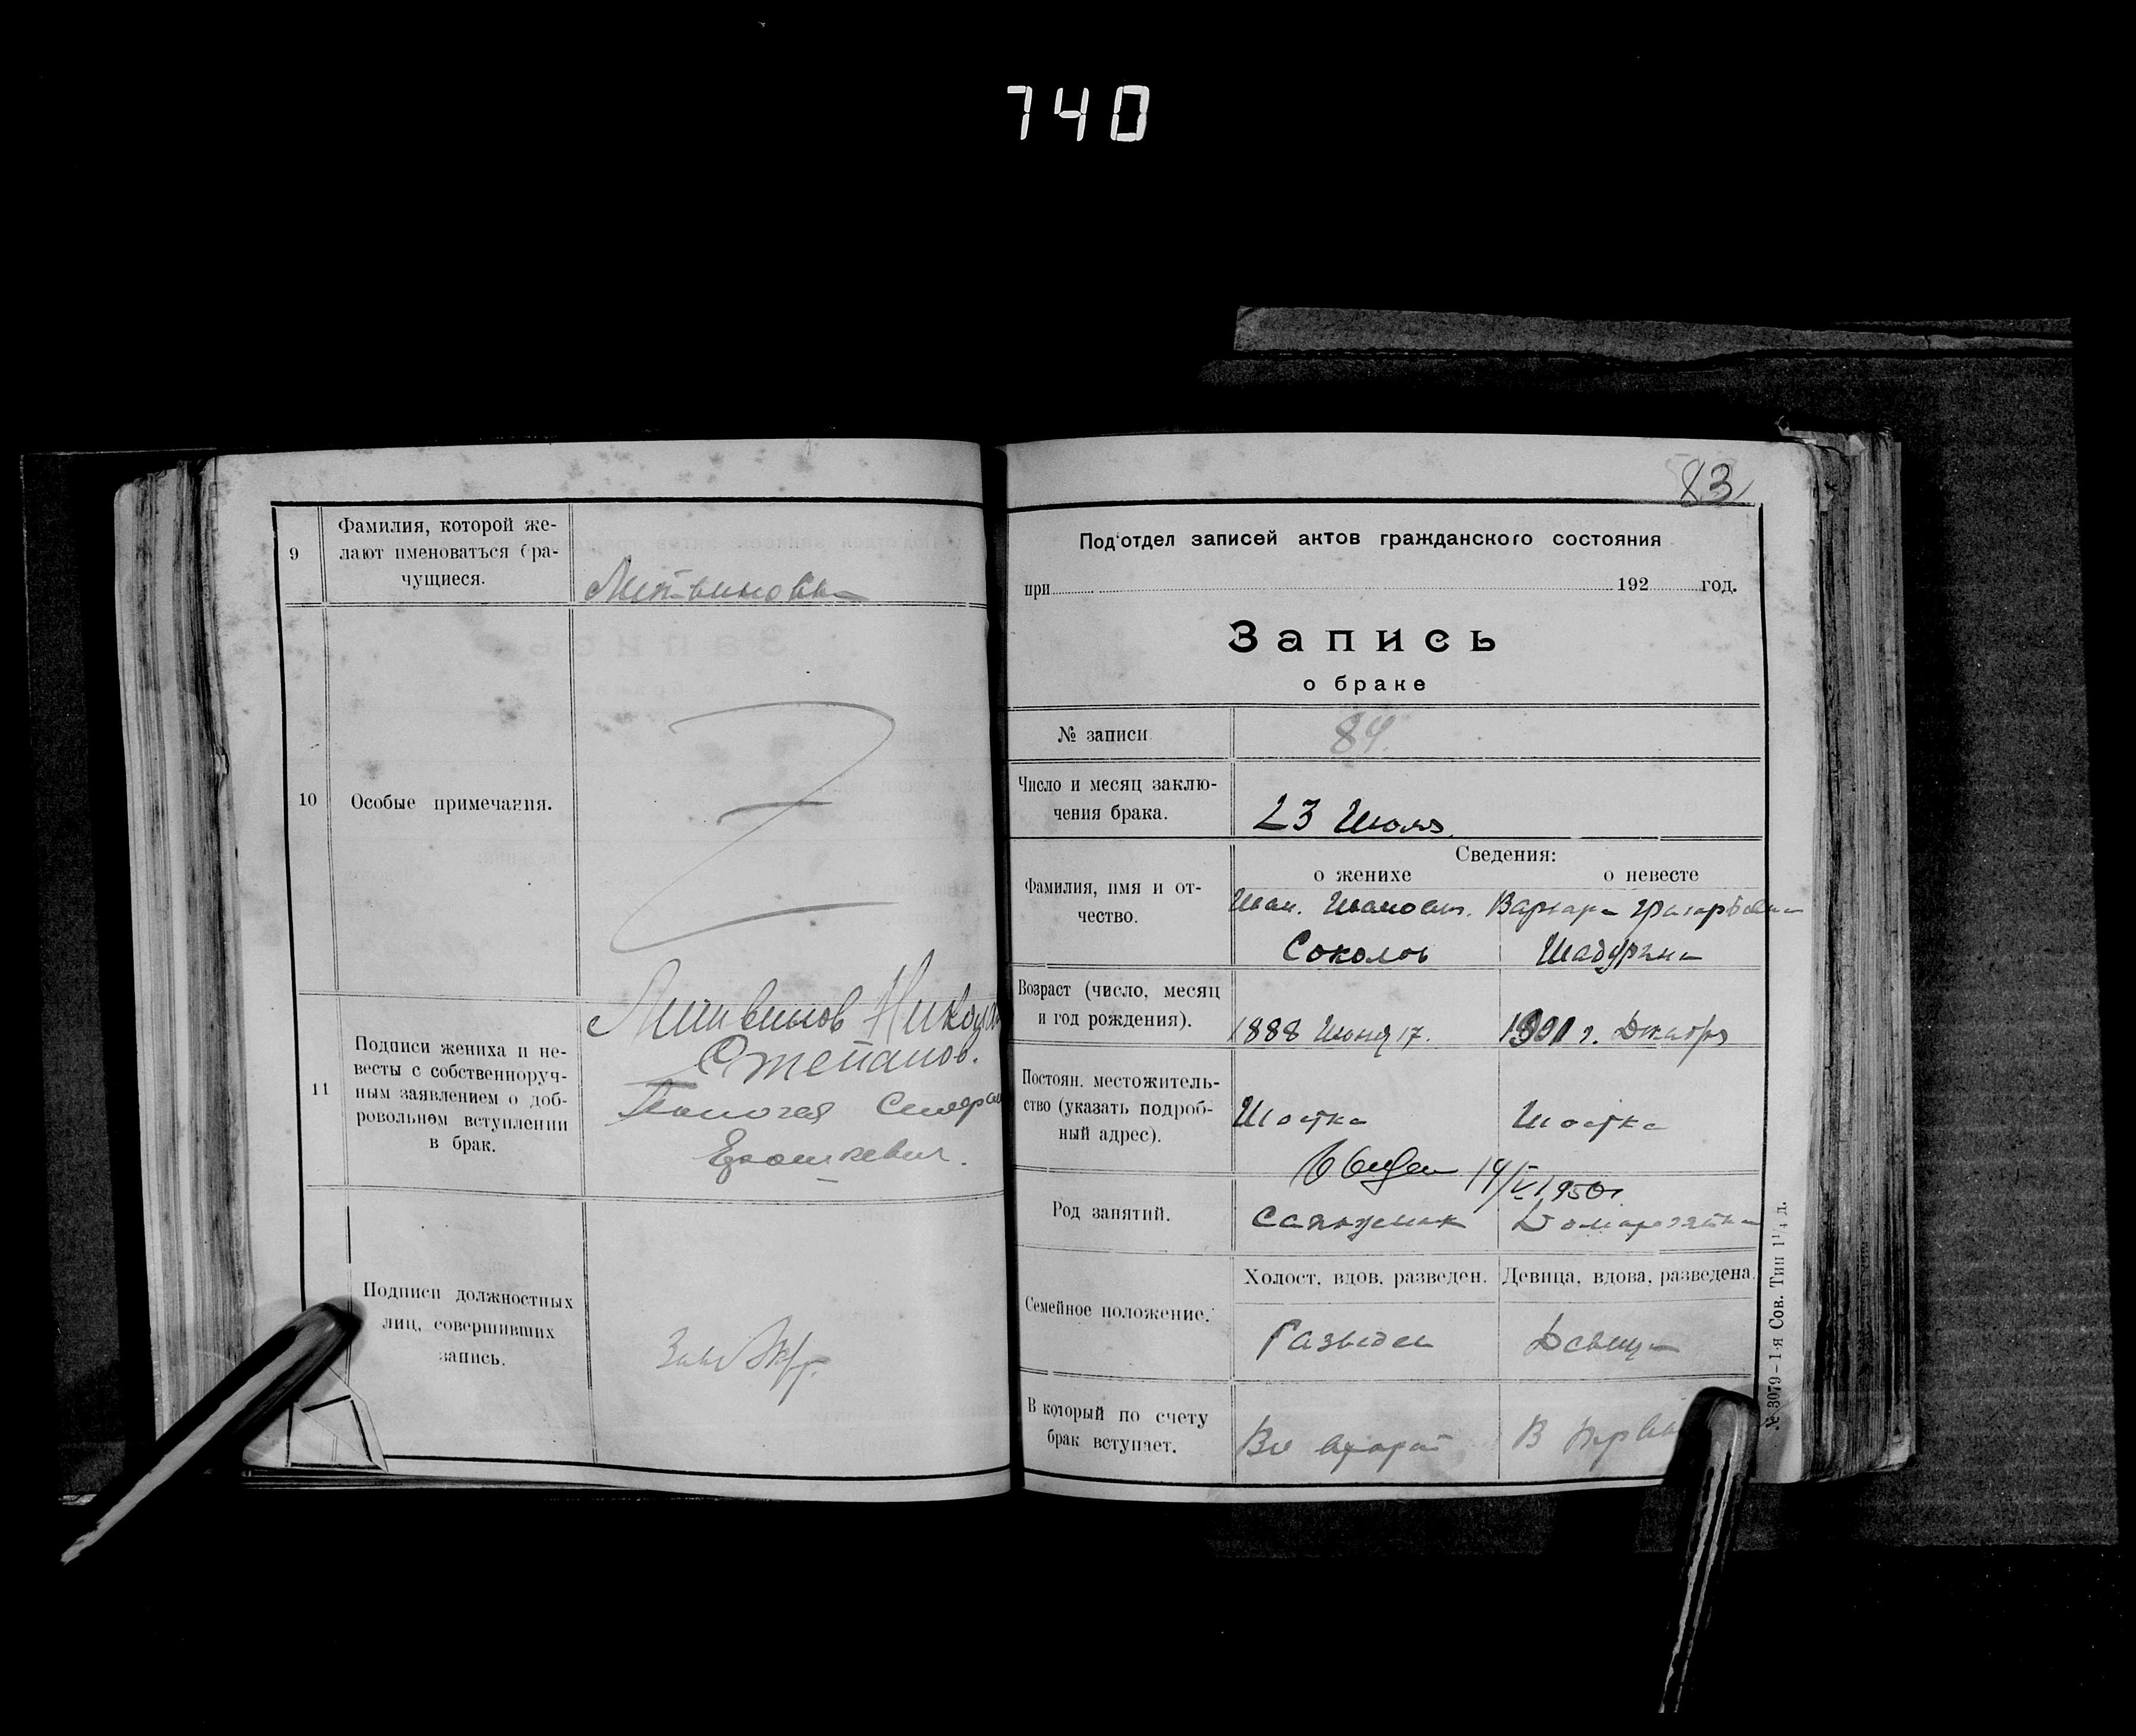 740
9
Фамилия, которой же-
лают именоваться бра-
чущиеся.
Литвиновы
10
Особые примечания.
11
Подписи жениха и не-
весты с собственноруч-
ным заявлением о доб-
ровольном вступлении
в брак.
Литвинов Николай
Степанов.
Подписи должностных
лиц, совершивших
запись.
83
Под'отдел записей актов гражданского состояния
при 192 год.
Запись
о браке
№ записи
84.
Число и месяц заклю-
чения брака.
23 Июля.
Сведения:
Фамилия, имя и от-
чество.
о женихе
о невесте
Иван. Иванович. Варвара Григорьевна
Соколов
Шадурина
Возраст (число, месяц
и год рождения).
1888 Июня 17.
1901 г. Декабря
Постоян. местожитель-
ство (указать подроб-
ный адрес).
Шостка
Шостка
14/V 1950г
Род занятий.
Сапожник
Домохозяйка
Семейное положение.
Холост, вдов, разведен.
Девица, вдова, разведена.
Разведен
Девица
В который по счету
брак вступает.
Во второй
В первый
№ 3079–1-я Сов. Тип 1¼ д.